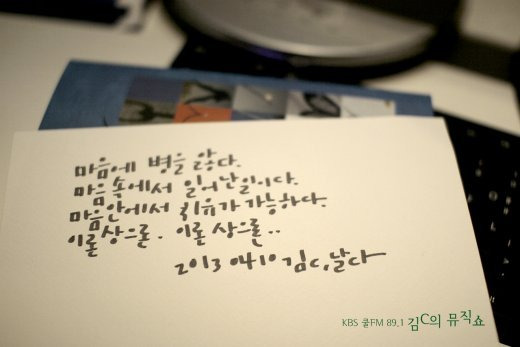 마음에 병을 앓다.
마음 속에서 일어난 일이다.
마음 안에서 치유가 가능하다.
이론상으론. 이론 상으론..
2013 0410 김C, 날다
KBS 쿨FM 89.1 김C의 뮤직쇼